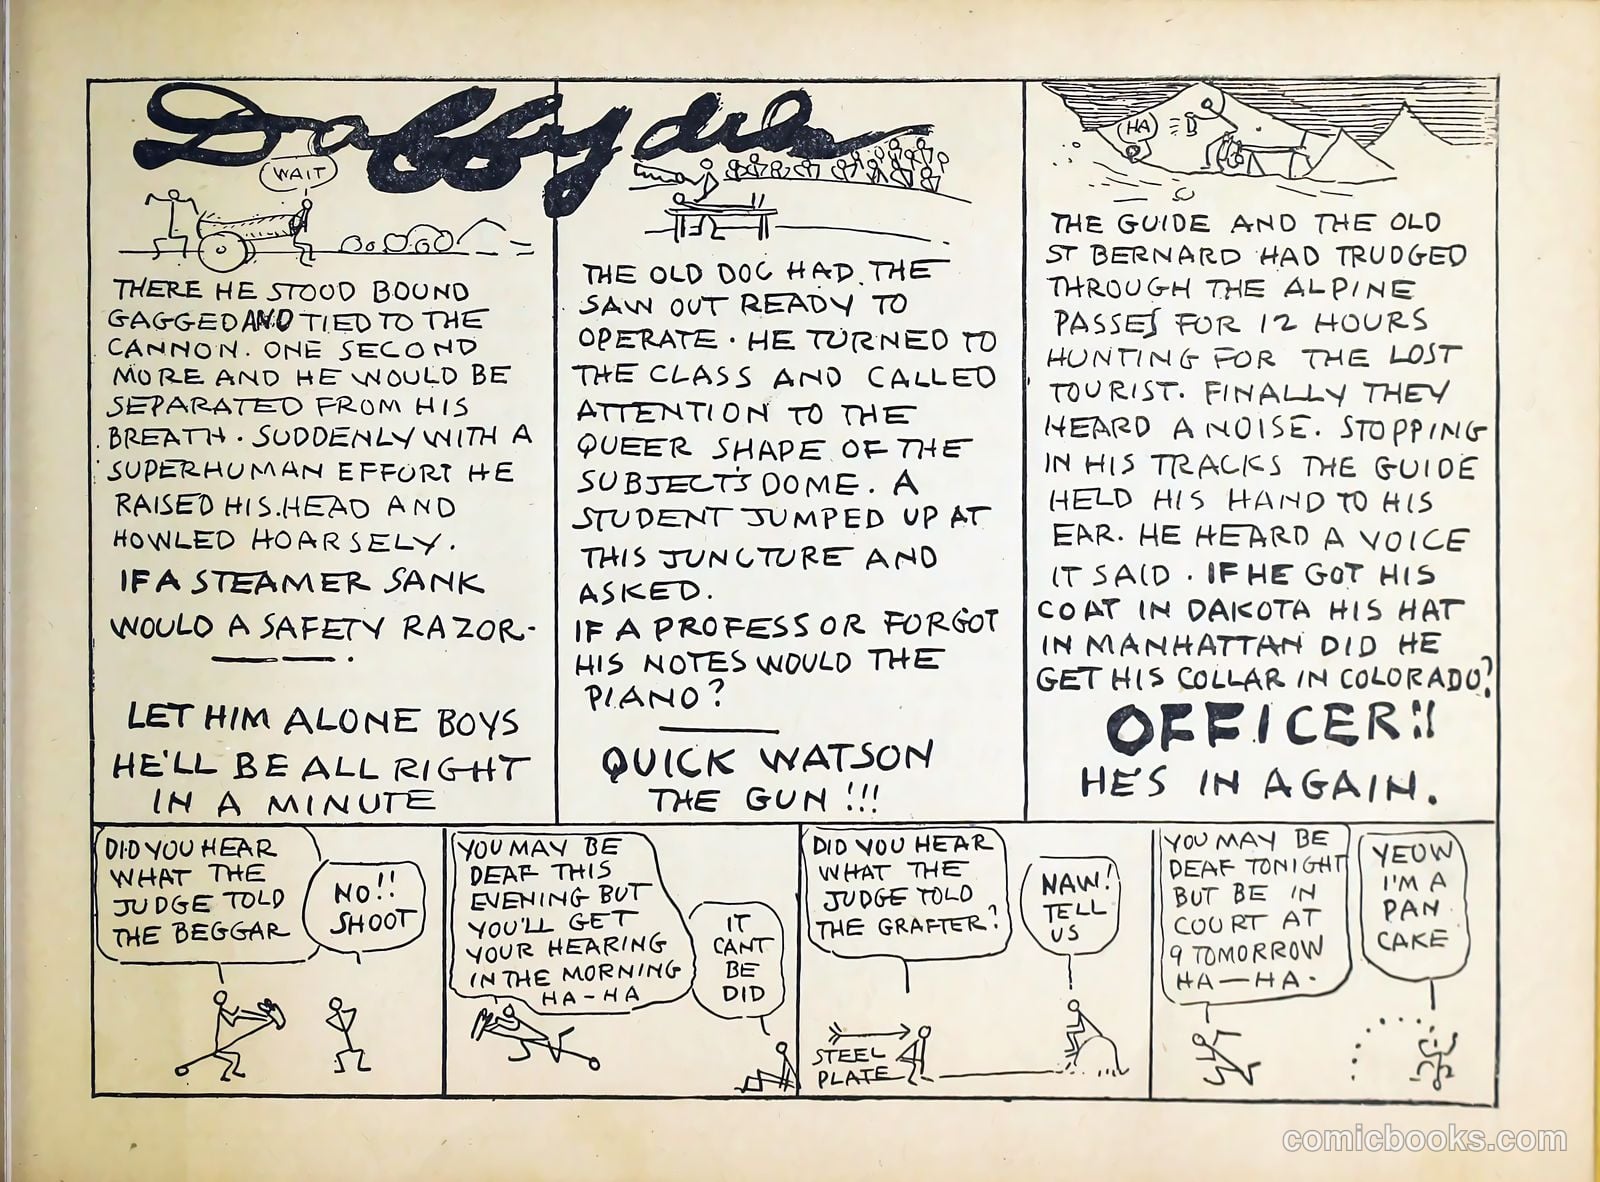 Daffydils
WAIT
THERE HE STOOD BOUND
GAGGED AND TIED TO THE
CANNON. ONE SECOND
MORE AND HE WOULD BE
SEPARATED FROM HIS
BREATH. SUDDENLY WITH A
SUPERHUMAN EFFORT HE
RAISED HIS HEAD AND
HOWLED HOARSELY.
IF A STEAMER SANK
WOULD A SAFETY RAZOR-
LET HIM ALONE BOYS
HE'LL BE ALL RIGHT
IN A MINUTE
THE OLD DOC HAD THE
SAW OUT READY TO
OPERATE. HE TURNED TO
THE CLASS AND CALLED
ATTENTION TO THE
QUEER SHAPE OF THE
SUBJECT'S DOME. A
STUDENT JUMPED UP AT
THIS JUNCTURE AND
ASKED.
IF A PROFESSOR FORGOT
HIS NOTES WOULD THE
PIANO?
QUICK WATSON
THE GUN!!!
HA
THE GUIDE AND THE OLD
ST BERNARD HAD TRUDGED
THROUGH THE ALPINE
PASSES FOR 12 HOURS
HUNTING FOR THE LOST
TOURIST. FINALLY THEY
HEARD A NOISE. STOPPING
IN HIS TRACKS THE GUIDE
HELD HIS HAND TO HIS
EAR. HE HEARD A VOICE
IT SAID. IF HE GOT HIS
COAT IN DAKOTA HIS HAT
IN MANHATTAN DID HE
GET HIS COLLAR IN COLORADO?
OFFICER!!
HE'S IN AGAIN.
DID YOU HEAR
WHAT THE
JUDGE TOLD
THE BEGGAR
NO!!
SHOOT
YOU MAY BE
DEAF THIS
EVENING BUT
YOU'LL GET
YOUR HEARING
IN THE MORNING
HA-HA
IT
CANT
BE
DID
DID YOU HEAR
WHAT THE
JUDGE TOLD
THE GRAFTER?
NAW!
TELL
US
STEEL
PLATE
YOU MAY BE
DEAF TONIGHT
BUT BE IN
COURT AT
9 TOMORROW
HA-HA-
YEOW
I'M A
PAN
CAKE
comicbooks.com